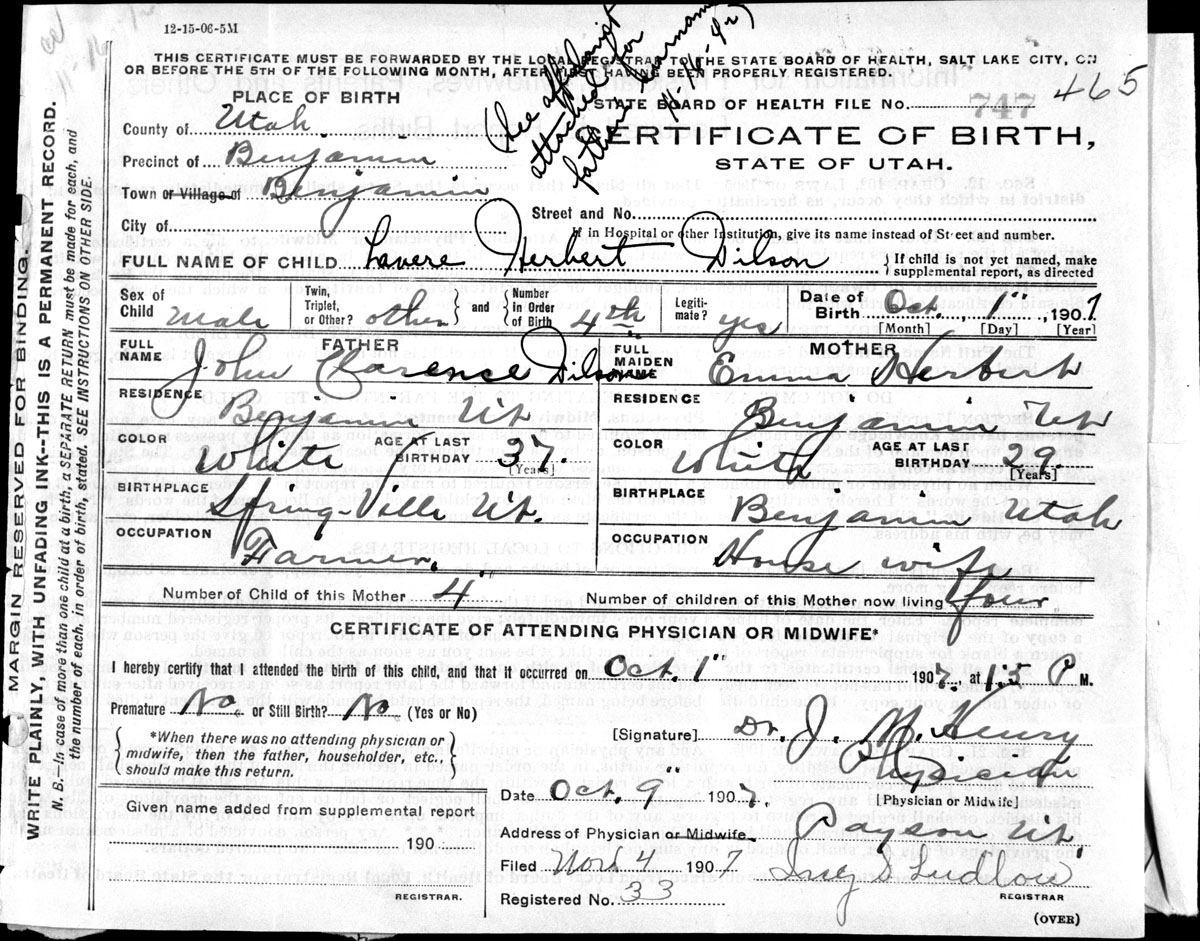 12-15-06-5M
THIS CERTIFICATE MUST BE FORWARDED BY THE LOCAL REGISTRAR TO THE STATE BOARD OF HEALTH, SALT LAKE CITY, ON
OR BEFORE THE 5TH OF THE FOLLOWING MONTH, AFTER FIRST HAVING BEEN PROPERLY REGISTERED.
See affidavit
attached for
father's surname
STATE BOARD OF HEALTH FILE No. 747 465
CERTIFICATE OF BIRTH,
STATE OF UTAH.
PLACE OF BIRTH
County of Utah.
Precinct of Benjamin
Town or Village of Benjamin
City of
Street and No.
If in Hospital or other Institution, give its name instead of Street and number.
FULL NAME OF CHILD Lavere Herbert Dilson } If child is not yet named, make
supplemental report, as directed
Sex of Child Male Twin, Triplet, or Other? other } and { Number In Order of Birth 4th Legitimate? yes Date of Birth Oct. 1", 1907
[Month] [Day] [Year]
FATHER
FULL NAME John Clarence Dilson
RESIDENCE Benjamin Ut
COLOR White AGE AT LAST BIRTHDAY 37
[Years]
BIRTHPLACE Spring-Ville Ut.
OCCUPATION Farmer.
MOTHER
FULL MAIDEN NAME Emma Herbert
RESIDENCE Benjamin Ut
COLOR White AGE AT LAST BIRTHDAY 29
[Years]
BIRTHPLACE Benjamin Utah
OCCUPATION House wife
Number of Child of this Mother 4 Number of children of this Mother now living four
CERTIFICATE OF ATTENDING PHYSICIAN OR MIDWIFE*
I hereby certify that I attended the birth of this child, and that it occurred on Oct. 1" 1907, at P M.
Premature No or Still Birth? No (Yes or No)
{ *When there was no attending physician or
midwife, then the father, householder, etc.,
should make this return. }
[Signature] Dr. J. M. Henry
Physician
[Physician or Midwife]
Date Oct. 9" 1907.
Address of Physician or Midwife Payson Ut.
Given name added from supplemental report
190
REGISTRAR.
Filed 4 1907 Ludlow
Registered No. 33
REGISTRAR
(OVER)
MARGIN RESERVED FOR BINDING.
WRITE PLAINLY, WITH UNFADING INK-THIS IS A PERMANENT RECORD.
N. B.-In case of more than one child at a birth, a SEPARATE RETURN must be made for each, and
the number of each, in order of birth, stated. SEE INSTRUCTIONS ON OTHER SIDE.